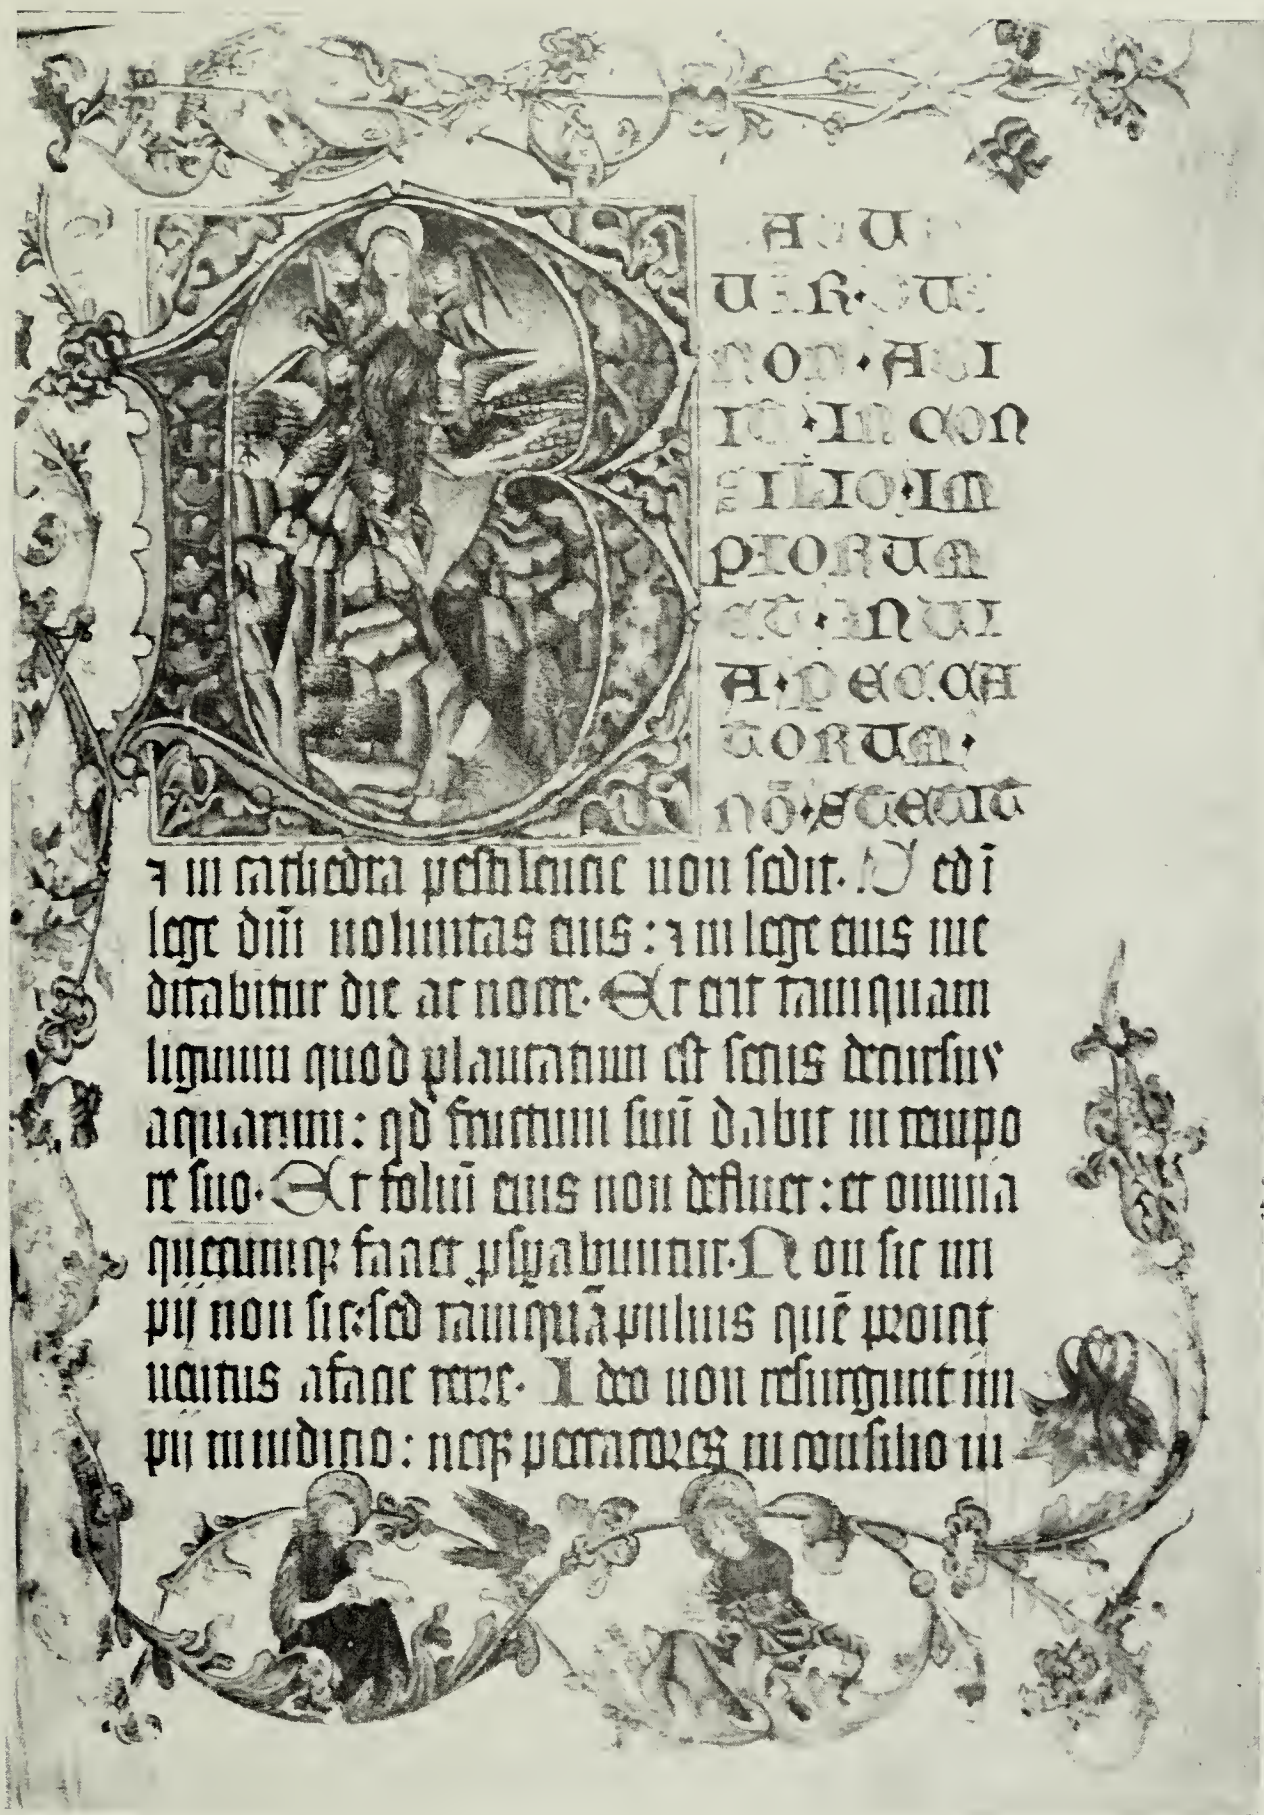 B EATUS
UIR · QUI
NON · ABI
IT · IN CON
SILIO · IM
PIORUM
ET · IN UI
A · PECCA
TORUM ·
Nō · STETIT
⁊ in cathedra pestilencie non sedit. Sed ī
lege dn̄i uoluntas eius : ⁊ in lege eius me
ditabitur die ac nocte. Et erit tamquam
lignum quod plantatum est secus decursus
aquarum : qd fructum suū dabit in tempo
re suo. Et foliū eius non defluet : et omnia
quecumq; faciet ꝓspabuntur. Non sic im
pij non sic : sed tamquā puluis quē proicit
uentus a facie terre. Ideo non resurgunt im
pij in iudicio : neqꝫ peccatores in consilio iu